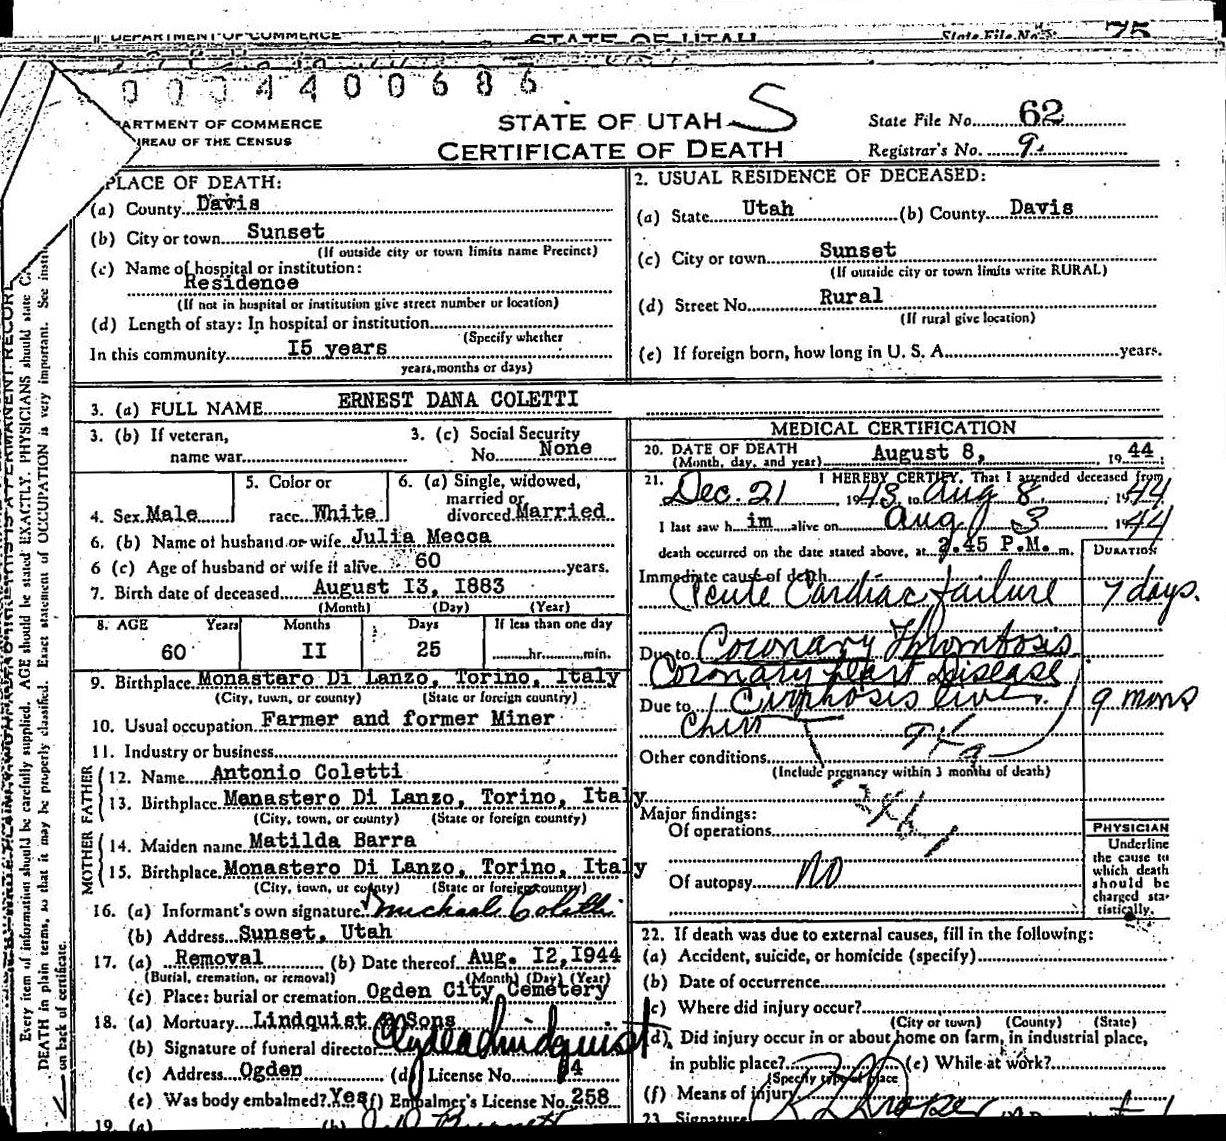 DEPARTMENT OF COMMERCE STATE OF UTAH State File No. 75
0 0 0 4 4 0 0 6 8 6
ARTMENT OF COMMERCE
REAU OF THE CENSUS
STATE OF UTAH S
CERTIFICATE OF DEATH
State File No. 62
Registrar's No. 9
PLACE OF DEATH:
(a) County Davis
(b) City or town Sunset
(If outside city or town limits name Precinct)
(c) Name of hospital or institution:
Residence
(If not in hospital or institution give street number or location)
(d) Length of stay: In hospital or institution
(Specify whether
In this community I5 years
years, months or days)
2. USUAL RESIDENCE OF DECEASED:
(a) State Utah (b) County Davis
(c) City or town Sunset
(If outside city or town limits write RURAL)
(d) Street No. Rural
(If rural give location)
(e) If foreign born, how long in U. S. A. years.
3. (a) FULL NAME ERNEST DANA COLETTI
3. (b) If veteran,
name war
3. (c) Social Security
No. None
4. Sex Male
5. Color or
race White
6. (a) Single, widowed,
married or
divorced Married
6. (b) Name of husband or wife Julia Mecca
6 (c) Age of husband or wife if alive 60 years.
7. Birth date of deceased August I3, I883
(Month) (Day) (Year)
8. AGE Years Months Days If less than one day
60 II 25 hr. min.
9. Birthplace Monastero Di Lanzo, Torino, Italy
(City, town, or county) (State or foreign country)
10. Usual occupation Farmer and former Miner
11. Industry or business
FATHER
12. Name Antonio Coletti
13. Birthplace Monastero Di Lanzo, Torino, Italy
(City, town, or county) (State or foreign country)
MOTHER
14. Maiden name Matilda Barra
15. Birthplace Monastero Di Lanzo, Torino, Italy
(City, town, or county) (State or foreign country)
16. (a) Informant's own signature Michael Coletti
(b) Address Sunset, Utah
17. (a) Removal (b) Date thereof Aug. I2, I944
(Burial, cremation, or removal) (Month) (Day) (Year)
(c) Place: burial or cremation Ogden City Cemetery
18. (a) Mortuary Lindquist & Sons
(b) Signature of funeral director Clyde Lindquist
(c) Address Ogden (d) License No. 4
(e) Was body embalmed? Yes (f) Embalmer's License No. 258
19. (a) (b)
MEDICAL CERTIFICATION
20. DATE OF DEATH
(Month, day, and year) August 8, 1944
21. I HEREBY CERTIFY, That I attended deceased from
Dec. 21 1943, to Aug 8, 1944
I last saw h im alive on Aug 3 1944
death occurred on the date stated above, at 2.45 P.M. m.
DURATION
Immediate cause of death
Acute Cardiac failure 7 days.
Due to Coronary Thrombosis
Coronary heart Disease
Due to Cirrhosis liver 9 mons
Other conditions
(Include pregnancy within 3 months of death)
Major findings:
Of operations
Of autopsy no
PHYSICIAN
Underline
the cause to
which death
should be
charged sta-
tistically.
22. If death was due to external causes, fill in the following:
(a) Accident, suicide, or homicide (specify)
(b) Date of occurrence
(c) Where did injury occur?
(City or town) (County) (State)
(d) Did injury occur in or about home on farm, in industrial place,
in public place? (e) While at work?
(Specify type of place
(f) Means of injury
23. Signature
Every item of information should be carefully supplied. AGE should be stated EXACTLY. PHYSICIANS should state
DEATH in plain terms, so that it may be properly classified. Exact statement of OCCUPATION is very important. See
on back of certificate.